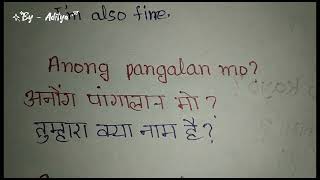 By - Aditya
I'm also fine.
Anong pangalan mo?
अनोंग पांगालान मो ?
तुम्हारा क्या नाम है?